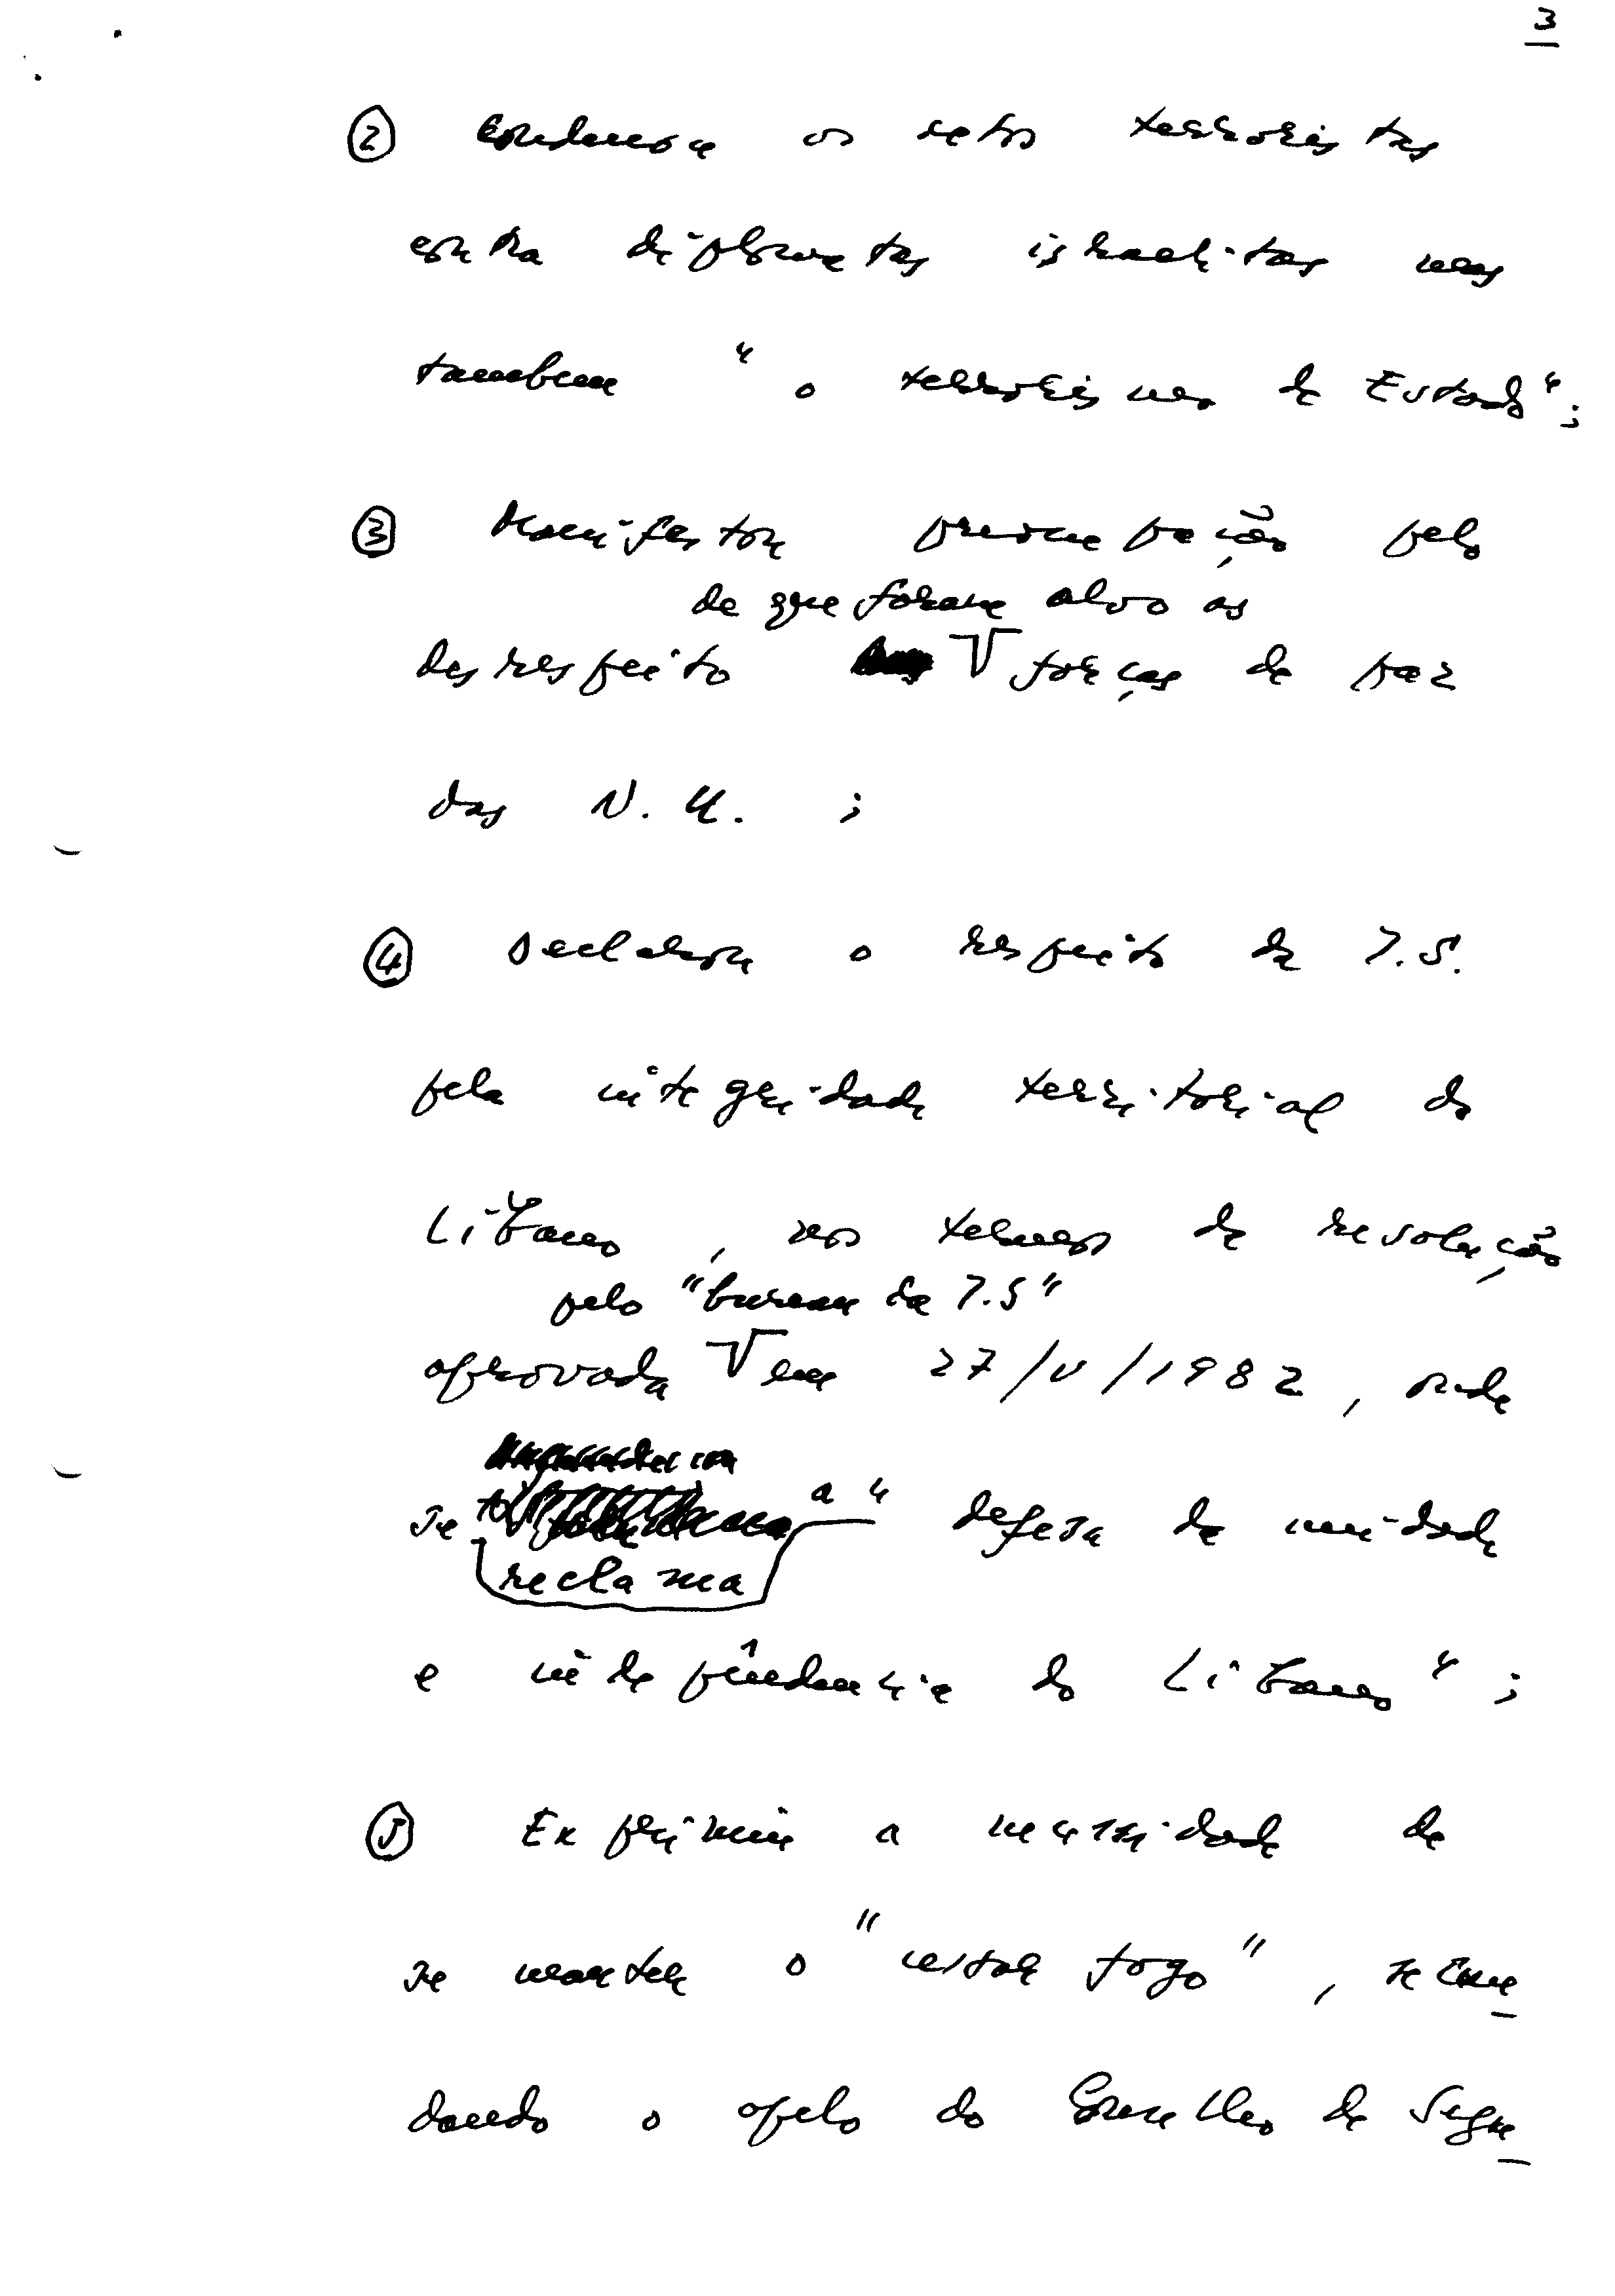 3
② Condenou os actos terroristas
contra diplomatas israelitas mas
tambem " o terrorismo de Estado";
③ Manifestou preocupação pelo
de que foram alvo as
desrespeito forças de paz
das N. U. ;
④ Declarou o respeito da I.S.
pela integridade territorial do
Líbano , nos termos da resolução
pelo "bureau da I.S"
aprovada em 27/V/1982 , onde
se a " defesa da unidade
reclama
e independência do Líbano" ;
⑤ Exprimiu a necessidade de
se manter o "cessar fogo" , recomen
dando o apelo do Conselho de Segu